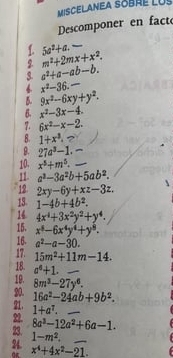 MISCELANEA SOBRE LOS
Descomponer en facto
1. 5a²+a.
2. m²+2mx+x².
3. a²+a−ab−b.
4. x²−36.
5. 9x²−6xy+y².
6. x²−3x−4.
7. 6x²−x−2.
8. 1+x³.
9. 27a³−1.
10. x⁵+m⁵.
11. a³−3a²b+5ab².
12. 2xy−6y+xz−3z.
13. 1−4b+4b².
14. 4x⁴+3x²y²+y⁴.
15. x⁸−6x⁴y⁴+y⁸.
16. a²−a−30.
17. 15m²+11m−14.
18. a⁶+1.
19. 8m³−27y⁶.
20. 16a²−24ab+9b².
21. 1+a⁷.
22. 8a³−12a²+6a−1.
23. 1−m².
24. x⁴+4x²−21.